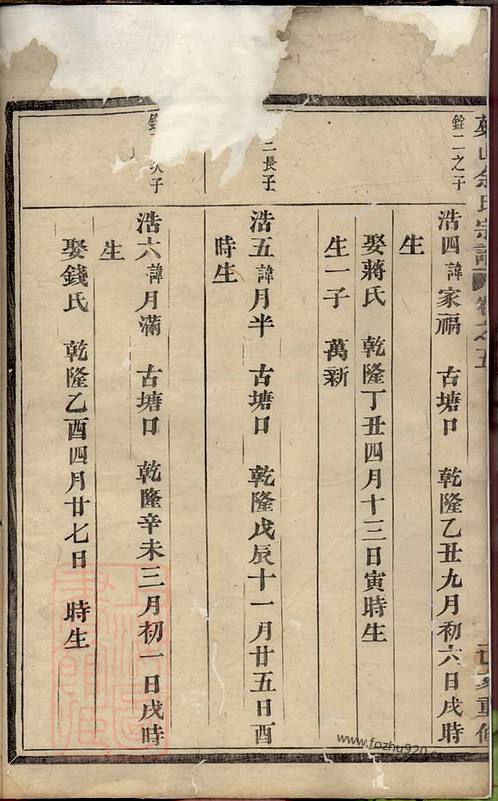 余氏宗譜 卷之五
重修
銓二之子
浩四 諱家福 古塘口 乾隆乙丑九月初六日戌時
生
娶蔣氏 乾隆丁丑四月十三日寅時生
生一子 萬新
二長子
浩五 諱月半 古塘口 乾隆戊辰十一月廿五日酉
時生
次子
浩六 諱月滿 古塘口 乾隆辛未三月初一日戌時
生
娶錢氏 乾隆乙酉四月廿七日 時生
www.fozhu920.com